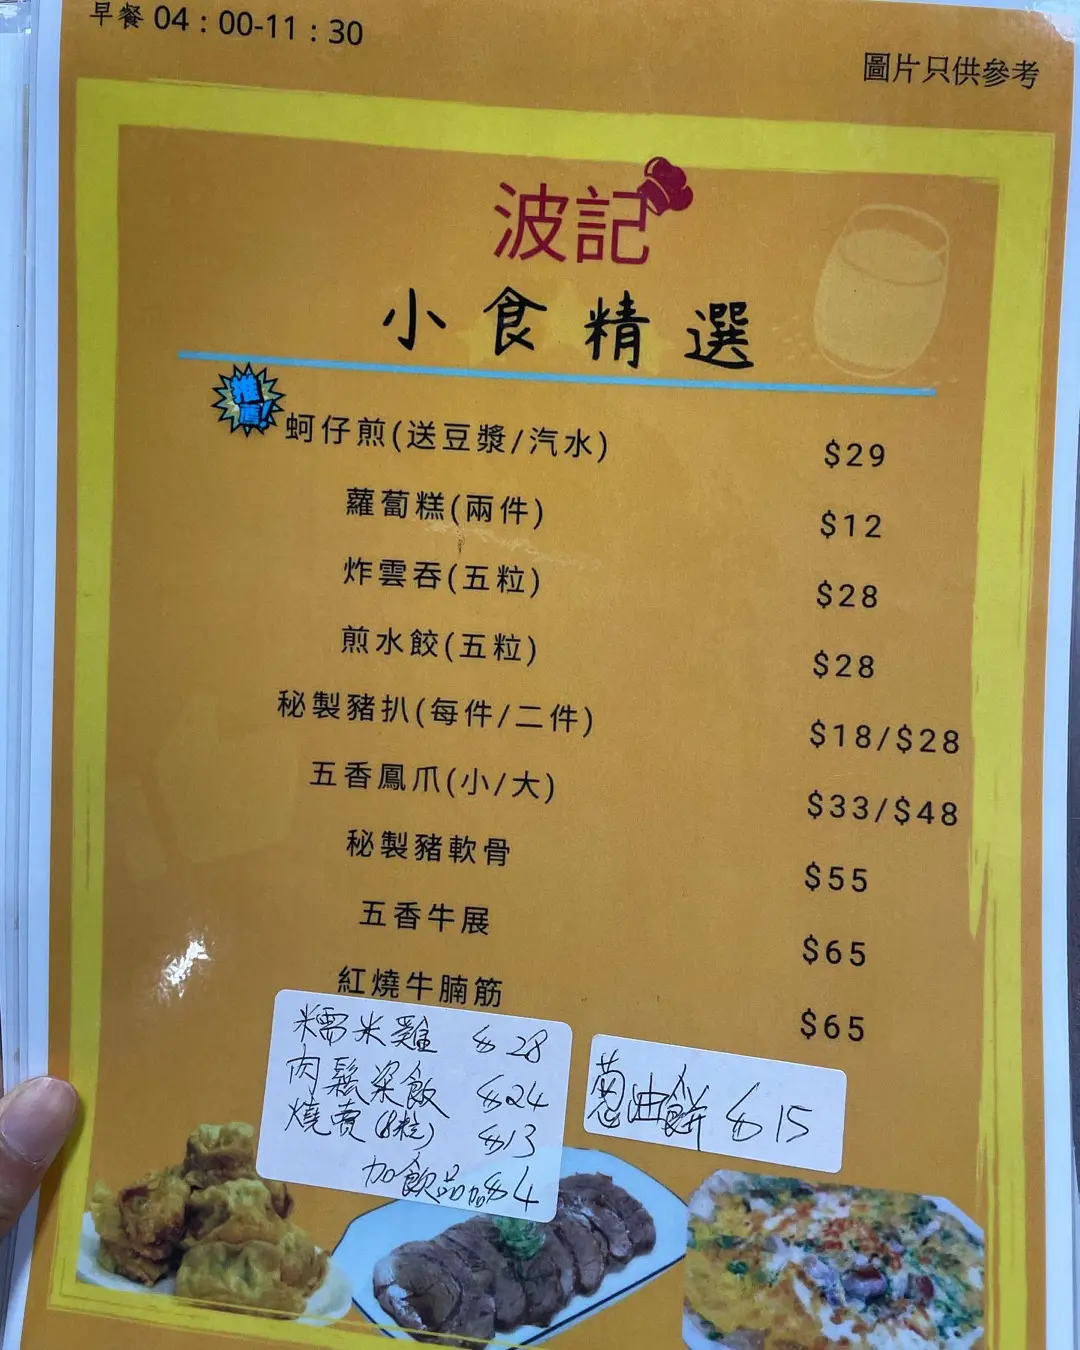 早餐 04：00-11：30
圖片只供參考
波記
小食精選
推薦！
蚵仔煎(送豆漿/汽水) $29
蘿蔔糕(兩件) $12
炸雲吞(五粒) $28
煎水餃(五粒) $28
秘製豬扒(每件/二件) $18/$28
五香鳳爪(小/大) $33/$48
秘製豬軟骨 $55
五香牛展 $65
紅燒牛腩筋 $65
糯米雞 $28
肉鬆粢飯 $24
燒賣(8粒) $13
加飲品加$4
蔥油餅 $15